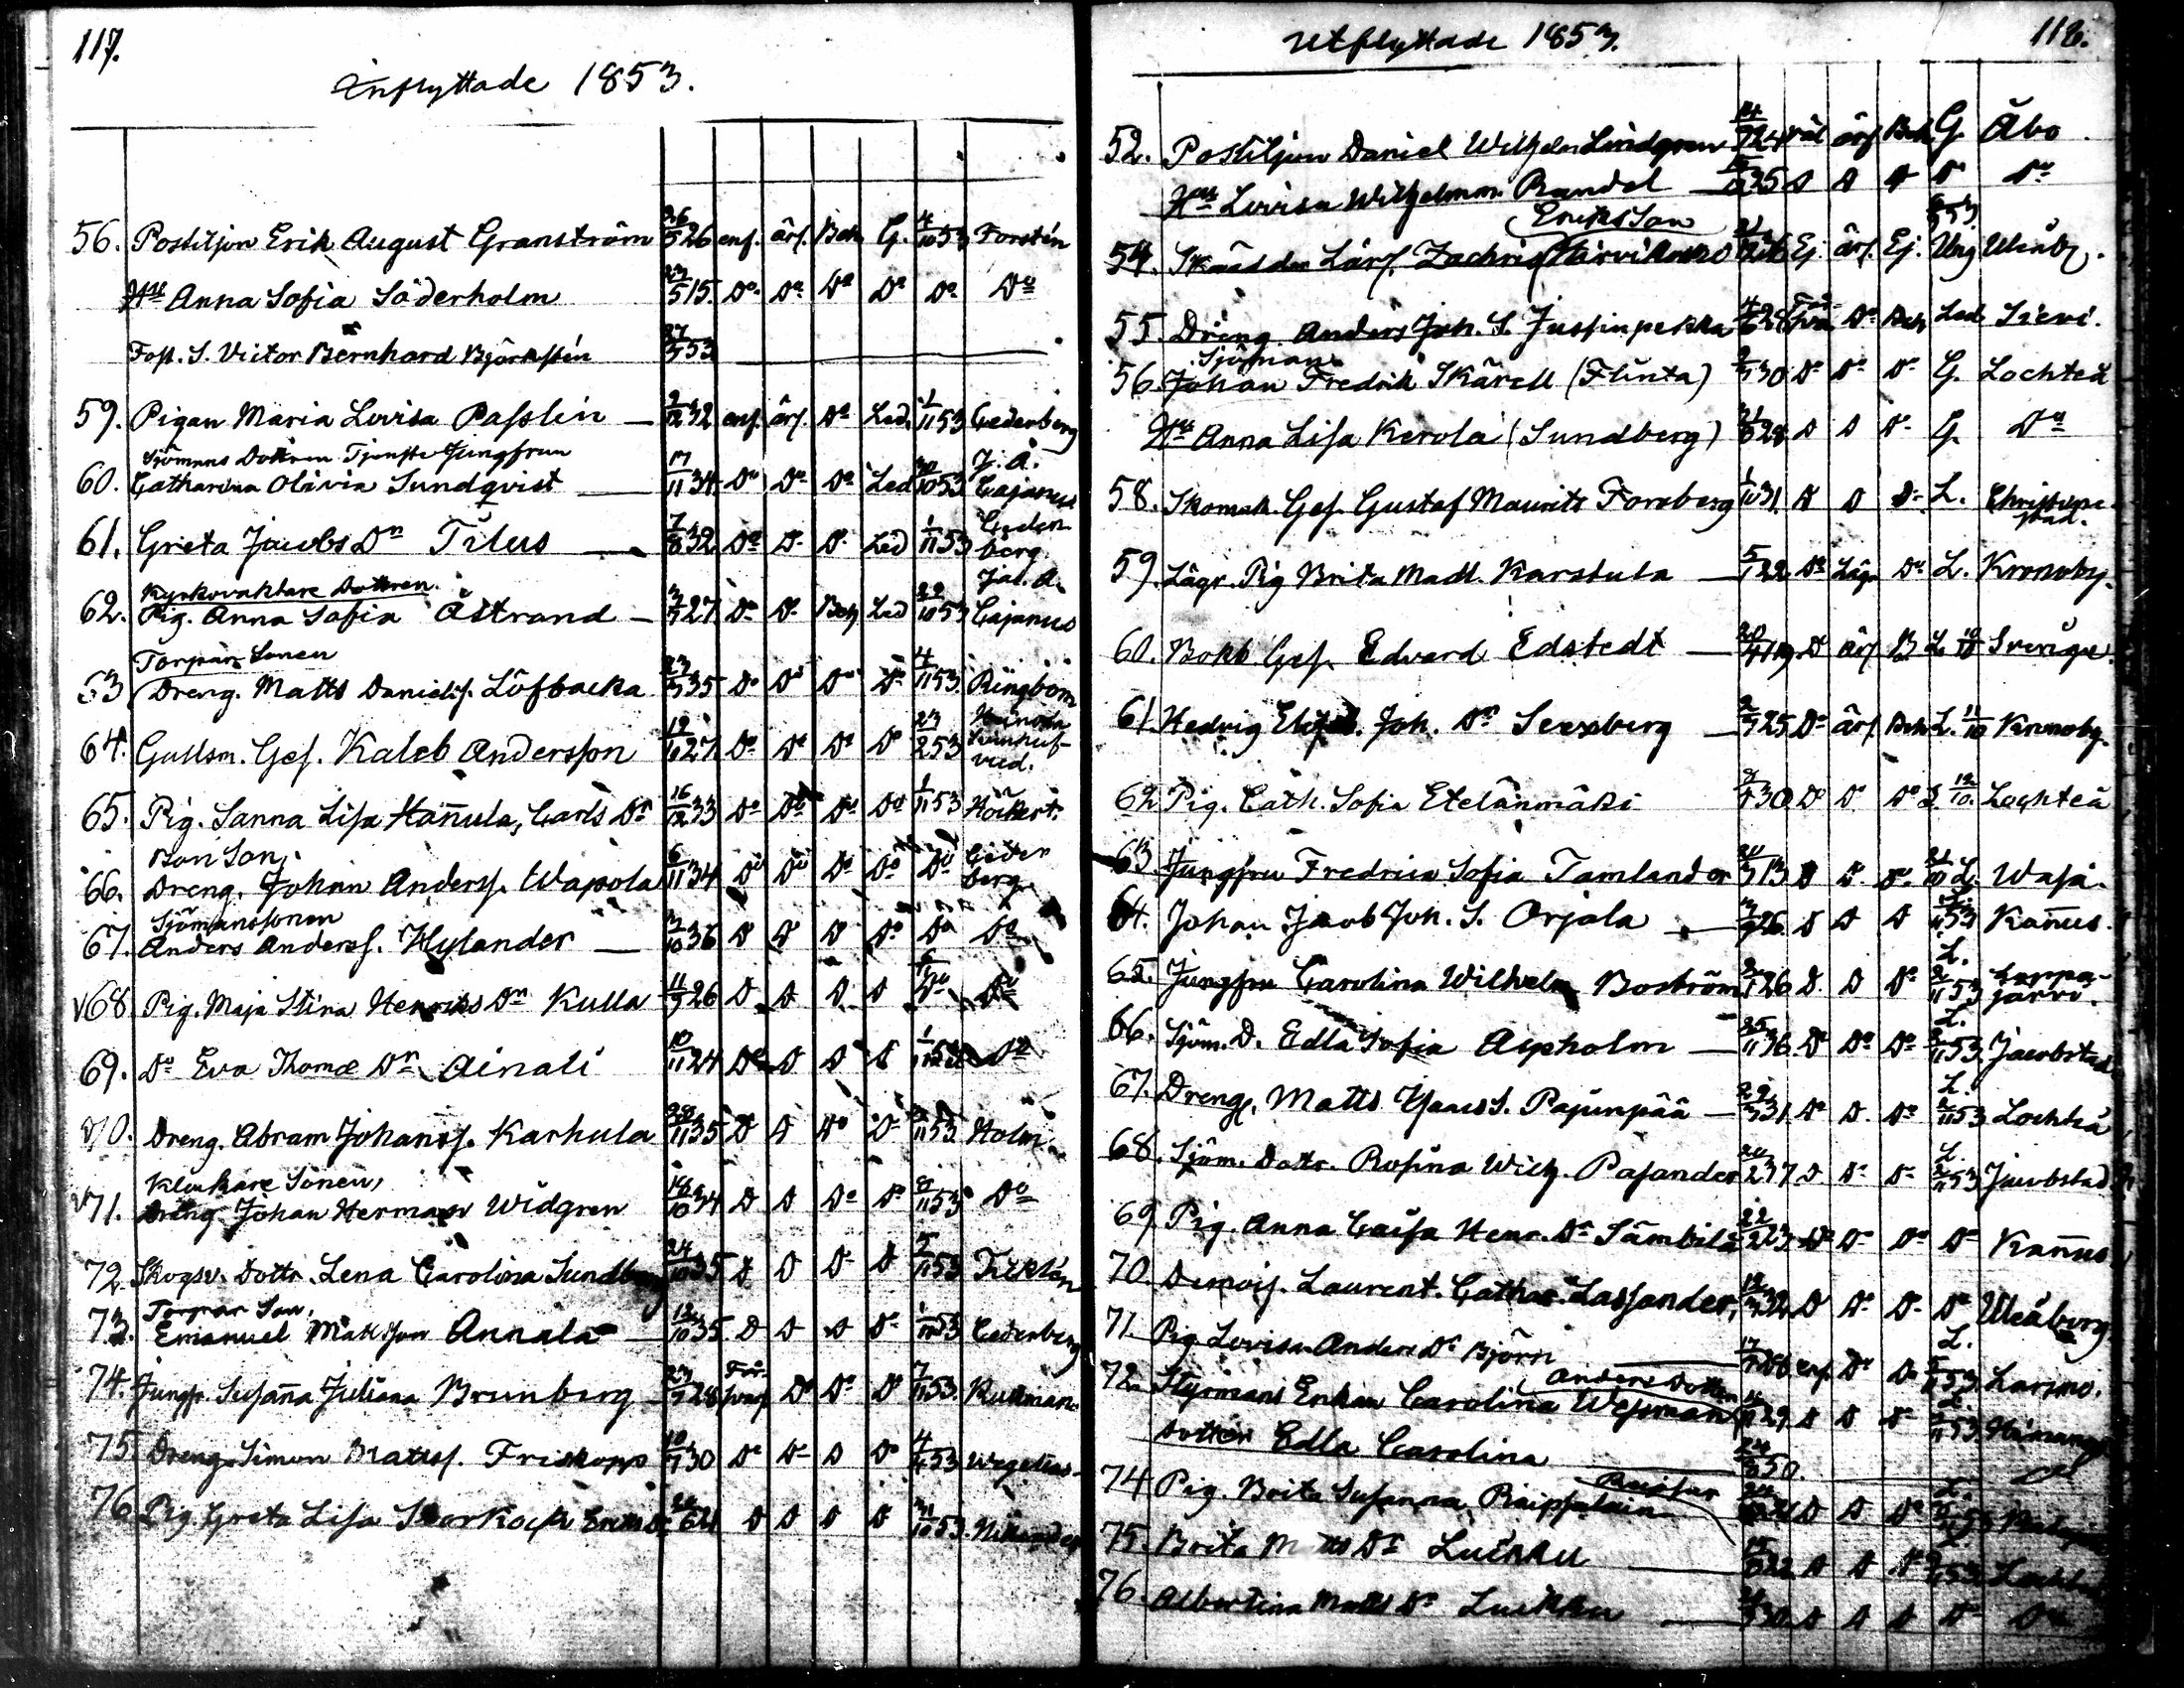 117.
Inflyttade 1853.
56. Postiljon Erik August Granström 26/5 26 enf. ärf. Beh. G. 4/10 53 Forstén
Hu Anna Sofia Söderholm 23/5 15. Do Do Do Do Do Do
Fost. S. Victor Bernhard Björkstén 27/3 53
59. Pigan Maria Lovisa Passlin 2/12 32 enf. ärf. Do Led. 1/11 53 Cederberg
Sjömans Dottren Tjenste Jungfrun J. A.
60. Catharina Olivia Sundqvist 17/11 34 Do Do Do Led 30/10 53 Cajanus
61. Greta Jacobs Dn Tilus 7/8 32 Do D. D. Led 1/11 53 Cederberg.
Kyrkovaktare Dottren. Jac. A.
62. Pig. Anna Sofia Åstrand 3/7 27. Do D. Beh Led 29/10 53 Cajanus
Torpare Sonen
63 Dreng. Matts Danielss. Löfbacka 23/3 35 Do Do Do Do 4/11 53. Ringbom
64. Gullsm. Gef. Kaleb Andersson 19/10 27. Do Do Do Do 23/2 53
65. Pig. Sanna Lisa Hannula, Carls Dr 16/12 33 Do Do Do Do 1/11 53 Höckert.
Bon Son,
66. Dreng. Johan Anderss. Wapola 6/11 34 Do Do Do Do Do Cederberg.
Sjömanssonen
67. Anders Anderss. Hylander 3/10 36 D D D Do Do Do
68 Pig. Maja Stina Henriks Dn Kulla 4/9 26 D D D D Do Do
69. Do Eva Thomæ Dn Ainali 10/11 24 Do D D D 1/11 53 Do
70. Dreng. Abram Johanss. Karhula 28/11 35 D D Do D 53 Holm.
Klockare Sonen,
71. Dreng. Johan Herman Widgren 18/10 34 D D Do Do 8/11 53 Do
72. Skogsv. Dottr. Lena Carolina Sundberg 24/10 35 D D D D 5/11 53
Torpar Son,
73. Emanuel Matsson Annala 12/10 35 D D D Do 1/11 53 Cederberg
74. Jungfr. Susanna Juliana Brunberg 23/7 28 Do Do D 7/11 53. Rudman.
75 Dreng Simon Mattss. Friskopp 10/7 30 Do D D Do 4/4 53 Wegelius
76 Pig Greta Lisa D D D D 31/10 53
Utflyttade 1853. 118.
52. Postiljon Daniel Wilhelm Lindgren 24 väl ärf Beh G. Åbo
Hu Lovisa Wilhelmina Randel 35 D D D D Do
Eriks Son
54. Zachris Ej. ärf. Ej. Ung Uleåb.
55. Dreng. Anders Joh. S. Jussinpekka 28 Do Beh Led Sievi.
Sjöman
56. Johan Fredrik Skärell (Flinta) 30 Do Do Do G. Lochteå
Hu Anna Lisa Kerola (Sundberg) 28 D D D G. Do
58. Skomak. Gef. Gustaf Maurits Forsberg 1/10 31. D D D L. Christinestad.
59. Lägr. Pig Brita Madl. Karstula 5/1 22 Do Läg. Do L. Kronoby.
60. Bokb Gef. Edvard Edstedt 19. D ärf B L. Sverige.
61. Hedvig Joh. Dr 25 Do ärf. Beh L. 11/10 Kronoby.
62 Pig. Cath. Sofia Etelänmäki 30 D D Do L. 12/10. Lochteå
63. Jungfru Fredrica Sofia Tamlander 13 D D D. L. Wasa.
64. Johan Jacob Joh. S. Orjala 26. D D D 53 Kannus.
L.
65. Jungfru Carolina Wilhelm. Boström 26 D. D Do 53 Lappajärvi.
L.
66. Sjöm. D. Edla Sofia Aspholm 25/11 36. D Do Do 53. Jacobstad
L.
67. Dreng. Matts Pajunpää 29/3 31. Do D. Do 53 Lochteå
L.
68. Sjöm. Dottr. Rosina Wilh. Pasander 20/2 37 D. D D 53 Jacobstad
69. Pig. Anna Caisa Henr. Dr Sämbilä 22/2 23 Do Do Do Do Kannus
70. Demois. Laurent. Cathar. Lassander, 32 D D D D Uleåborg
L.
71. Pig Lovisa Anders Dr Björn 28 enf. D D 53 Larsmo.
Anders Dotter
72. Styrmans Enkan Carolina Wesman 29. D D D 53
Dotter Edla Carolina 50.
74 Pig. Brita Susanna D D Do
75. Brita Matts Dr Luikku 22 D D D 53 Lochteå
76. Albertina Matts Dr Luikku 30. D D D D Do